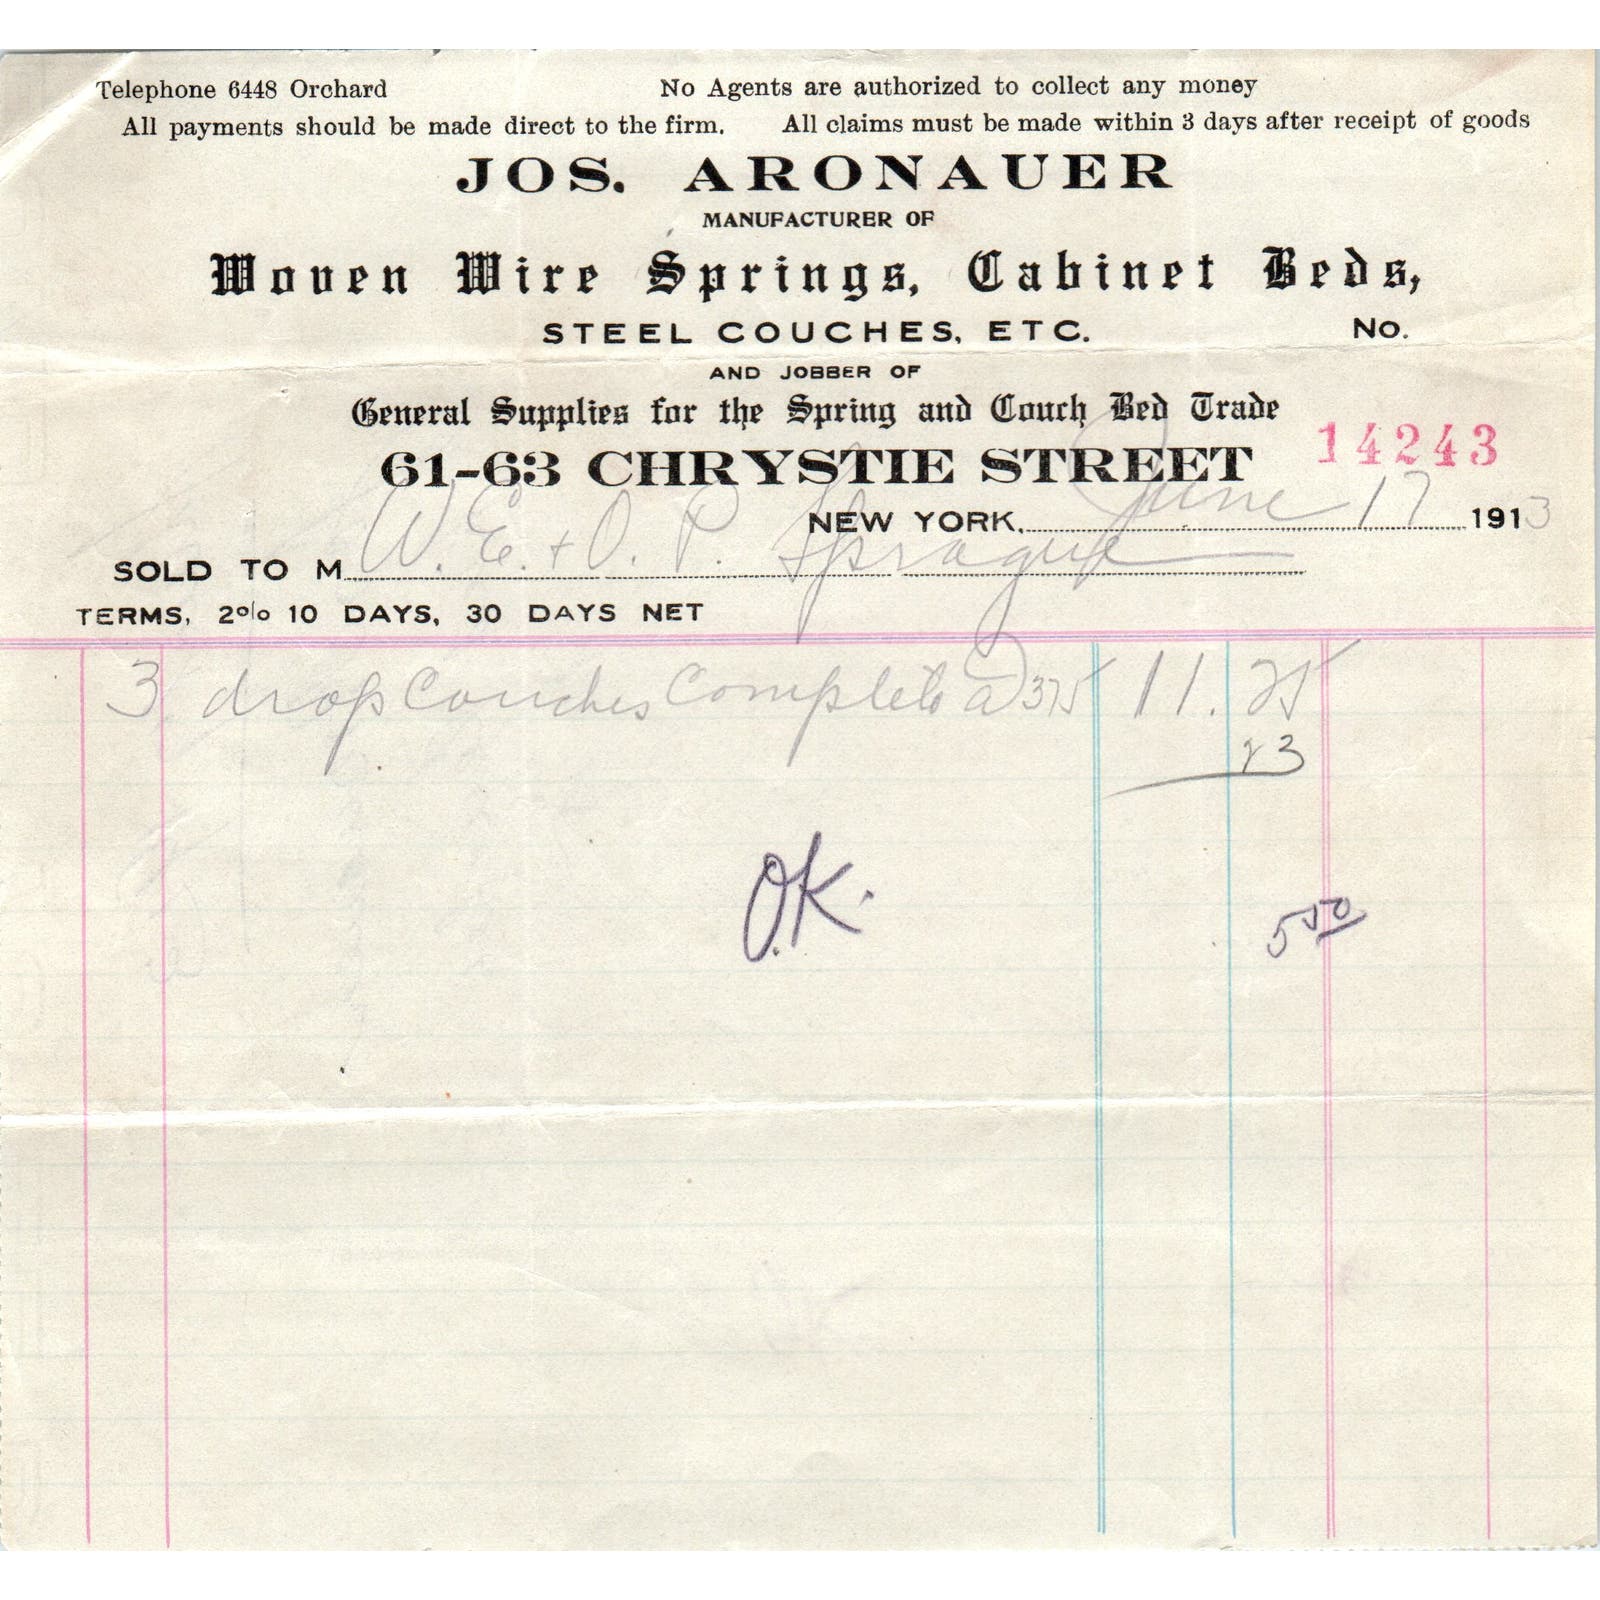 Telephone 6448 Orchard No Agents are authorized to collect any money
All payments should be made direct to the firm. All claims must be made within 3 days after receipt of goods
JOS. ARONAUER
MANUFACTURER OF
Woven Wire Springs, Cabinet Beds,
STEEL COUCHES, ETC. No.
AND JOBBER OF
General Supplies for the Spring and Couch Bed Trade
61-63 CHRYSTIE STREET 14243
NEW YORK, June 17 1913
SOLD TO M W. E. & O. P. Sprague
TERMS, 2% 10 DAYS, 30 DAYS NET
3 drop Couches Complete a 375 11.25
23
O.K.
5 50